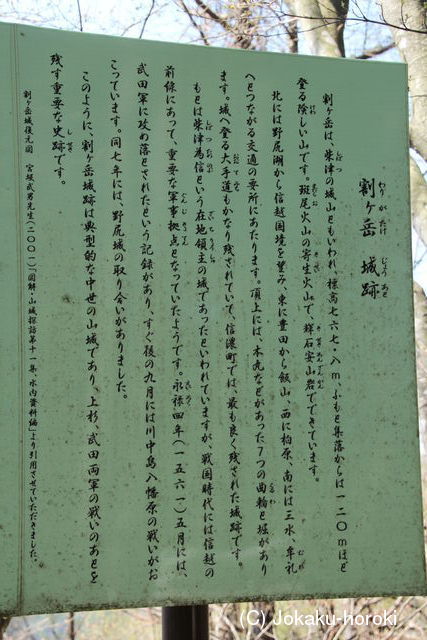 割ヶ岳 城跡
わりがたけ じょうあと
割ヶ岳は、柴津の城山ともいわれ、標高七六七・八m、ふもと集落からは一二〇mほど
登る険しい山です。斑尾火山の寄生火山で、輝石安山岩でできています。
北には野尻湖から信越国境を望み、東に豊田から飯山、西に柏原、南には三水、牟礼
へとつながる交通の要所にあたります。頂上には、本丸などがあった7つの曲輪と堀があり
ます。城へ登る大手道もかなり残されていて、信濃町では、最も良く残された城跡です。
もとは柴津為信という在地領主の城であったといわれていますが、戦国時代には信越の
前線にあって、重要な軍事拠点となっていたようです。永禄四年(一五六一)五月には、
武田軍に攻め落とされたという記録があり、すぐ後の九月には川中島八幡原の戦いがお
こっています。同七年には、野尻城の取り合いがありました。
このように、割ヶ岳城跡は典型的な中世の山城であり、上杉、武田両軍の戦いのあとを
残す重要な史跡です。
割ヶ岳城復元図 宮坂武男先生(二〇〇一)「図解・山城探訪第十一集、水内資料編」より引用させていただきました。
(C) Jokaku-horoki